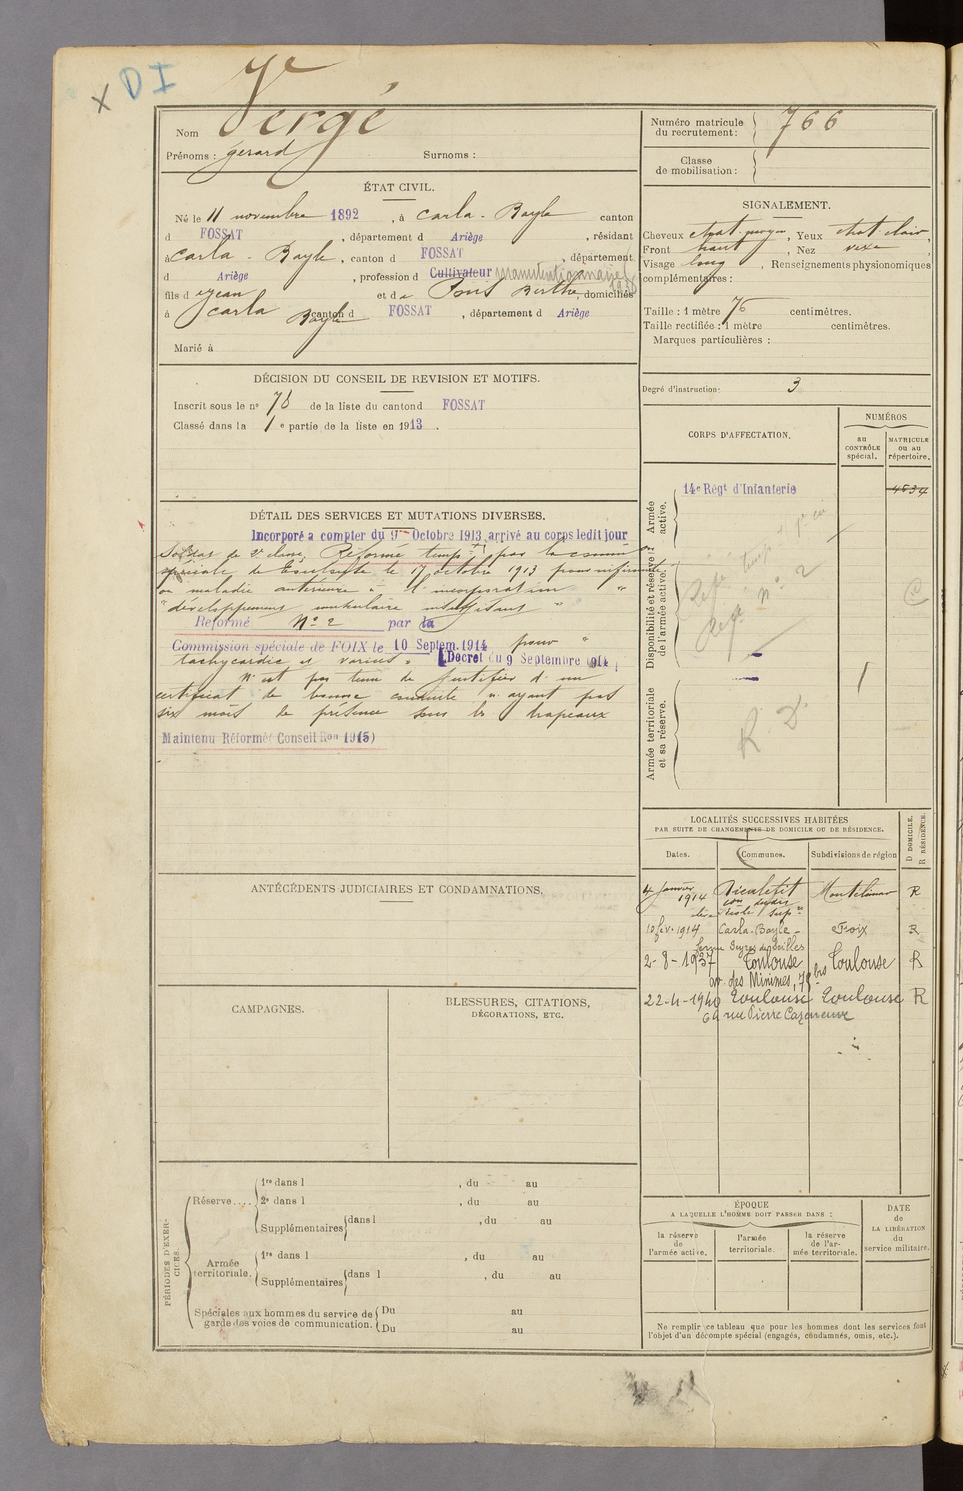 X DI
Nom Vergé
Prénoms : gerard Surnoms :
ÉTAT CIVIL.
Né le 11 novembre 1892, à Carla-Bayle canton
d FOSSAT, département d Ariège, résidant
à Carla-Bayle, canton d FOSSAT, département
d Ariège, profession d Cultivateur manutentionnaire
fils d e Jean et d e Pons Berthe, domiciliés
à Carla Bayle canton d FOSSAT, département d Ariège
Marié à
DÉCISION DU CONSEIL DE REVISION ET MOTIFS.
Inscrit sous le n° 78 de la liste du canton d FOSSAT
Classé dans la 1e partie de la liste en 1913.
DÉTAIL DES SERVICES ET MUTATIONS DIVERSES.
Incorporé a compter du 9 Octobre 1913 arrivé au corps ledit jour
Soldat de 2e classe, Réformé tempre par la commion
spéciale de le 17 octobre 1913 pour infirmité
ou maladie antérieure à l'incorporation "
développement musculaire insuffisant "
Reformé N° 2 par la
Commission spéciale de FOIX le 10 Septem. 1914 pour "
tachycardie et varices "
Décret du 9 Septembre 1914
N'est pas tenu de justifier d'un
certificat de bonne conduite n'ayant pas
six mois de présence sous les drapeaux
Maintenu Réformé (Conseil Ron 1915)
ANTÉCÉDENTS JUDICIAIRES ET CONDAMNATIONS.
CAMPAGNES.
BLESSURES, CITATIONS,
DÉCORATIONS, ETC.
PÉRIODES D'EXERCICES.
Réserve....
1re dans l , du au
2e dans l , du au
Supplémentaires dans l , du au
Armée territoriale.
1re dans l , du au
Supplémentaires dans l , du au
Spéciales aux hommes du service de garde des voies de communication.
Du au
Du au
Numéro matricule
du recrutement : 766
Classe
de mobilisation :
SIGNALEMENT.
Cheveux chat. , Yeux chat clair,
Front haut , Nez vexe
Visage long , Renseignements physionomiques
complémentaires :
Taille : 1 mètre 76 centimètres.
Taille rectifiée : 1 mètre centimètres.
Marques particulières :
Degré d'instruction : 3
CORPS D'AFFECTATION.
NUMÉROS
au CONTRÔLE spécial.
MATRICULE ou au répertoire.
Armée active.
14e Régt d'Infanterie 4534
Disponibilité et réserve de l'armée active.
Réfé temp
Réfé n° 2
Armée territoriale et sa réserve.
R. D.
1
LOCALITÉS SUCCESSIVES HABITÉES
PAR SUITE DE CHANGEMENTS DE DOMICILE OU DE RÉSIDENCE.
Dates. Communes. Subdivisions de région D DOMICILE. R RÉSIDENCE.
4 Janvier 1914 Dieulefit Montélimar R
10 fév. 1914 Carla-Bayle - Foix R
2-8-1937 Toulouse Toulouse R
av. des Minimes, 78 bis
22-4-1940 Toulouse Toulouse R
64 rue Pierre Cazeneuve
ÉPOQUE
A LAQUELLE L'HOMME DOIT PASSER DANS :
la réserve de l'armée active.
l'armée territoriale.
la réserve de l'armée territoriale.
DATE de LA LIBÉRATION du service militaire.
Ne remplir ce tableau que pour les hommes dont les services font
l'objet d'un décompte spécial (engagés, condamnés, omis, etc.).